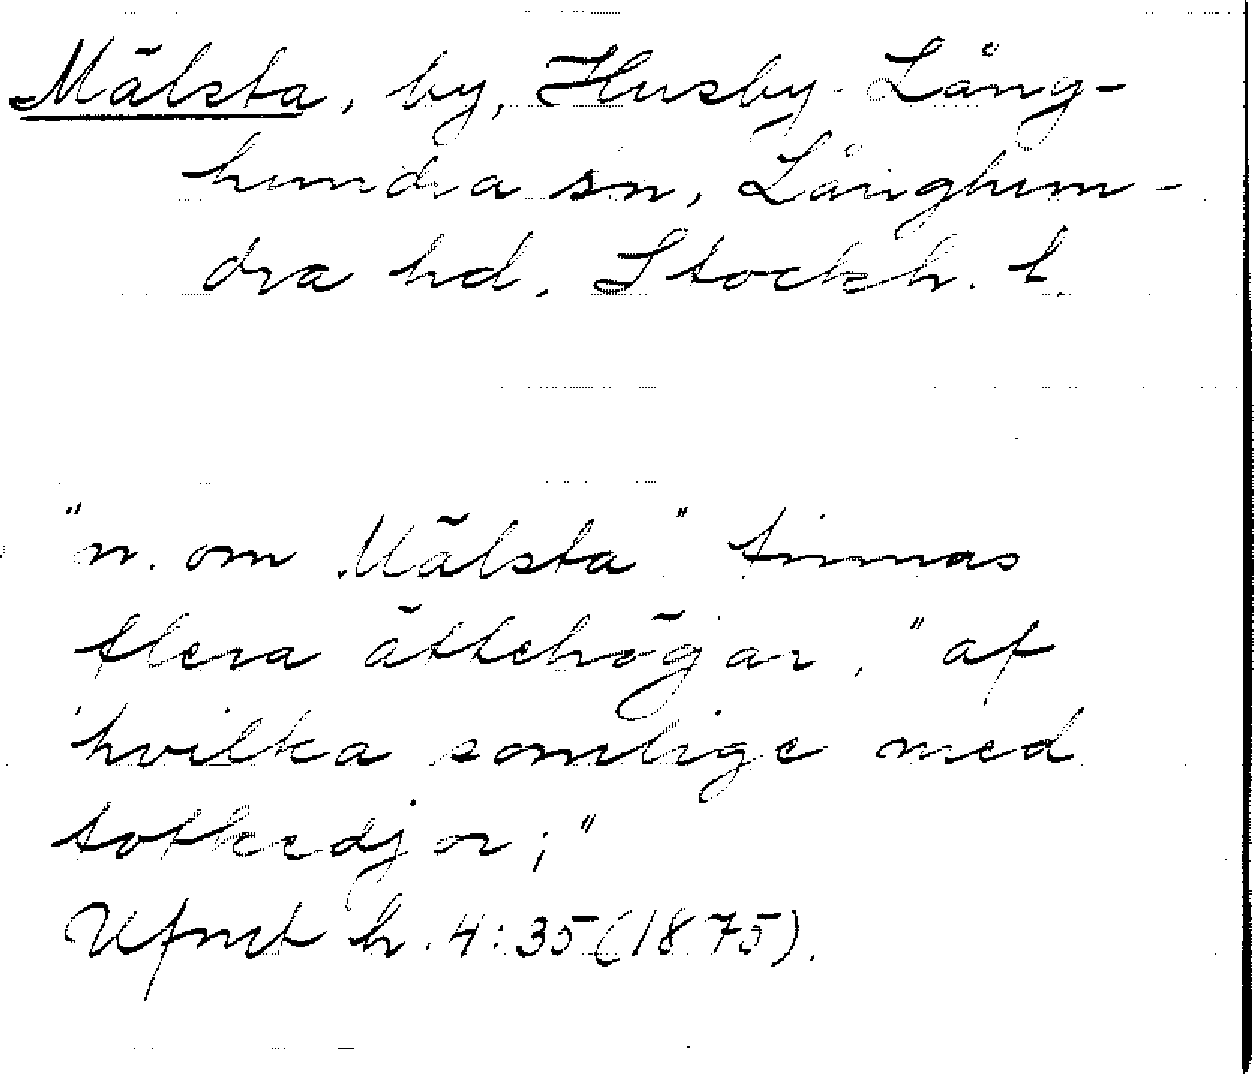 Mälsta, by, Husby-Lång-
hundra sn, Långhun-
dra hd, Stockh. l.
"n. om Mälsta" finnas
flera ättehögar, "af
hvilka somlige med
fotkedjor;"
Ufmt h. 4:35 (1875).